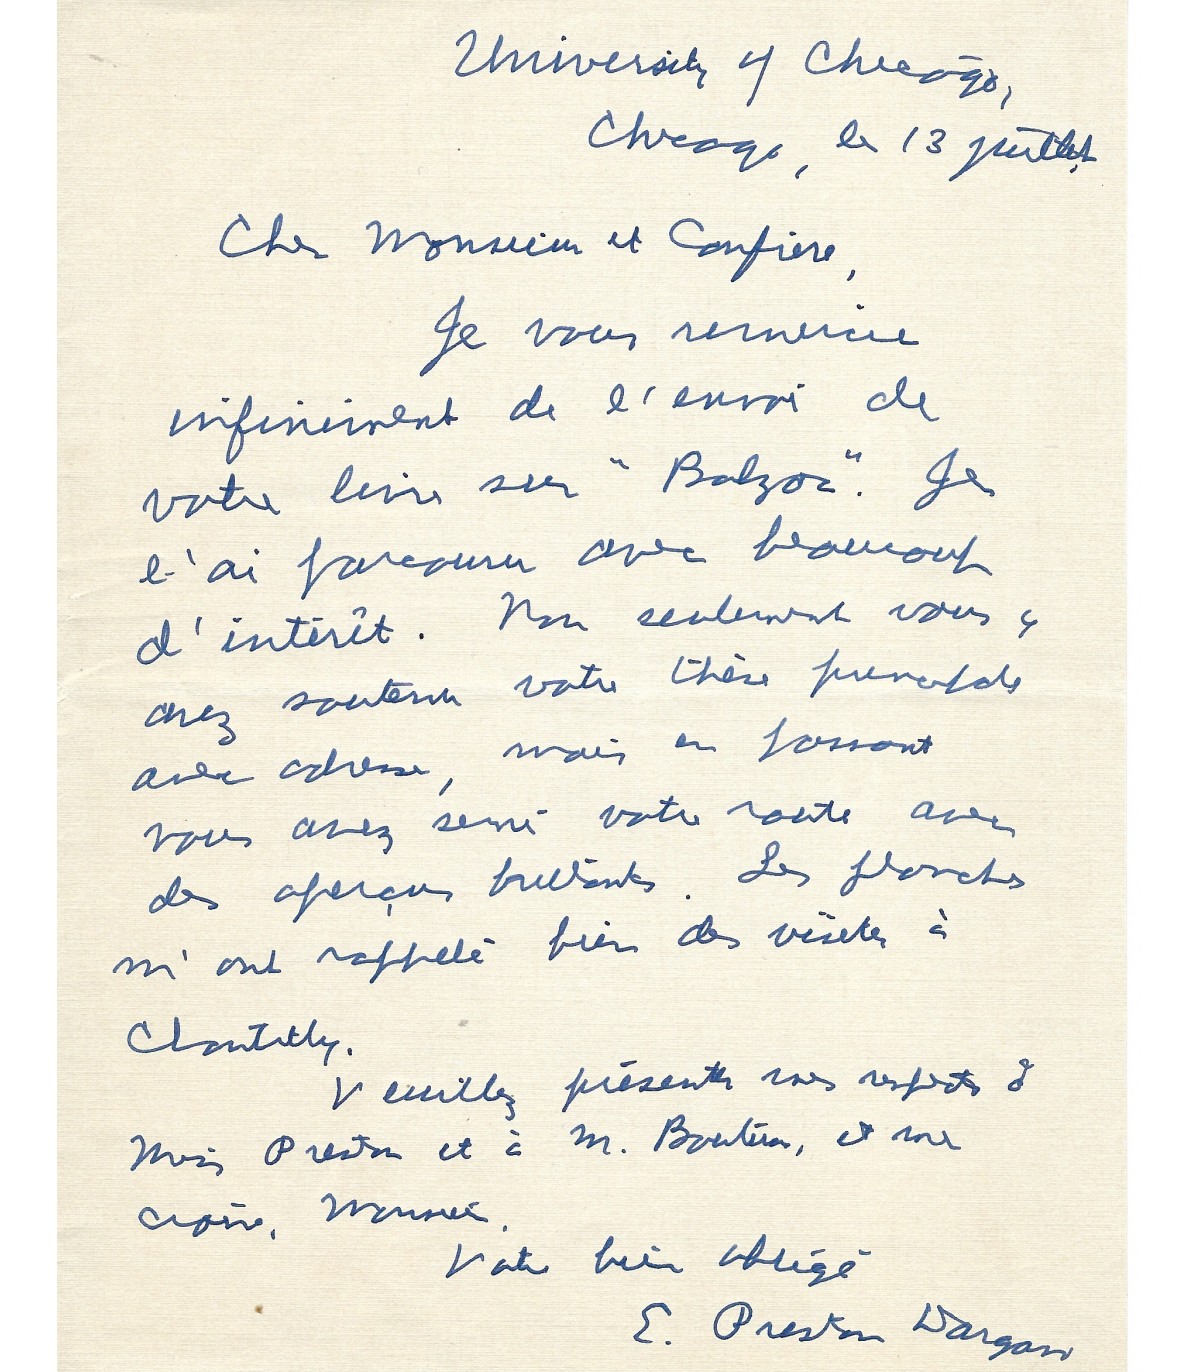 University of Chicago,
Chicago, le 13 juillet
Cher Monsieur et Confrère,
Je vous remercie
infiniment de l'envoi de
votre livre sur "Balzac". Je
l'ai parcouru avec beaucoup
d'intérêt. Non seulement vous y
avez soutenu votre thèse principale
avec adresse, mais en passant
vous avez semé votre route avec
des aperçus brillants. Les planches
m'ont rappelé bien des visites à
Chantilly.
Veuillez présenter mes respects à
Miss Preston et à M. Bouteron, et me
croire, Monsieur,
Votre bien obligé
E. Preston Dargan